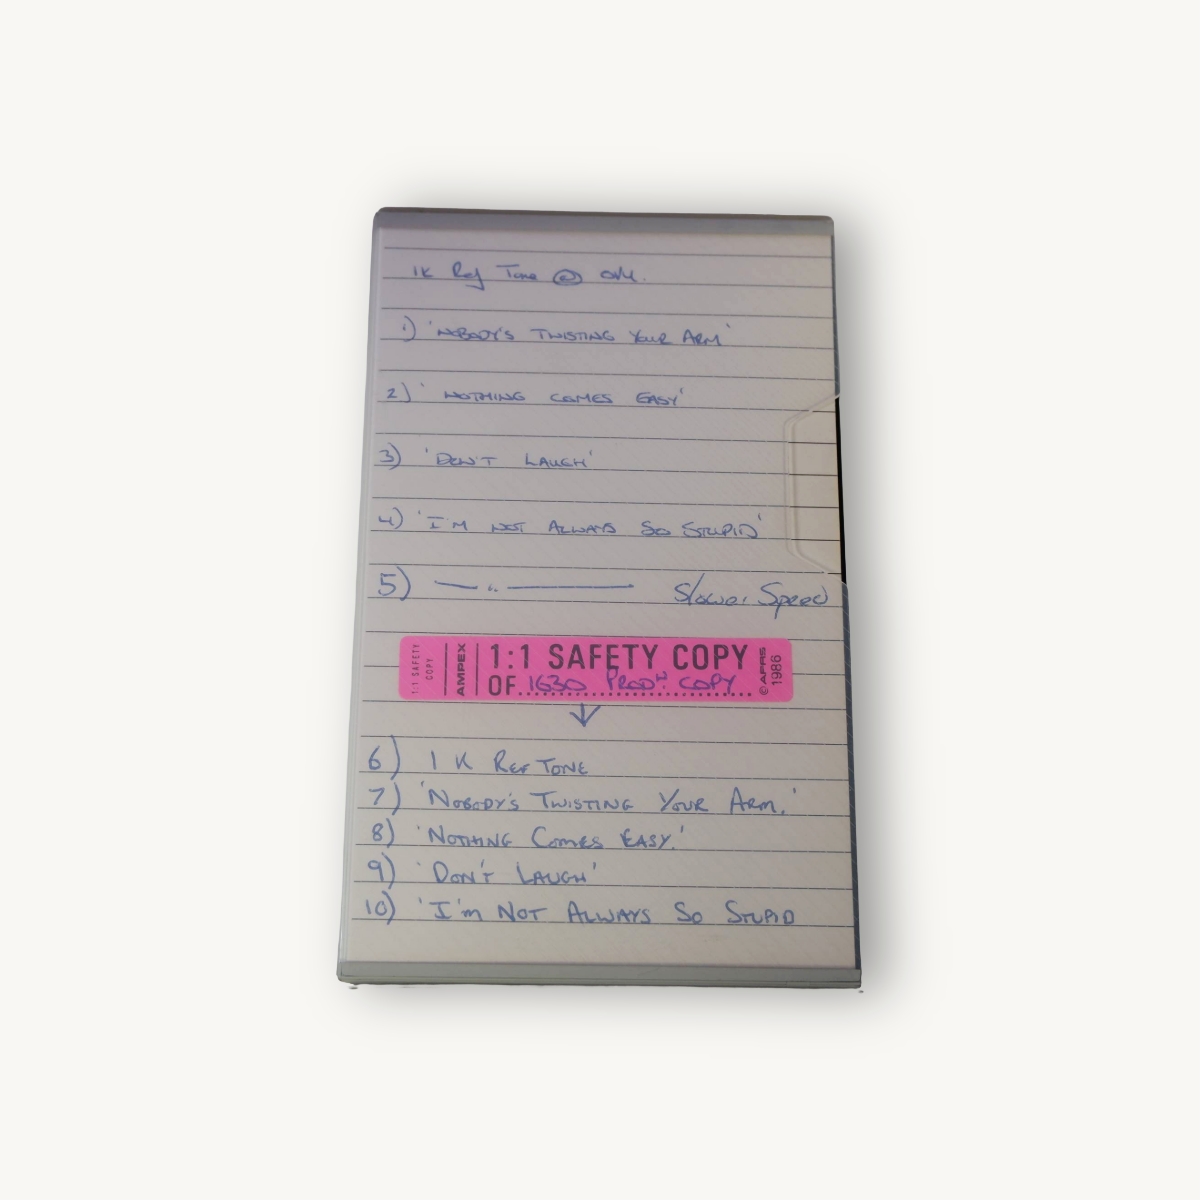 1K Ref Tone @ OVU.
1) 'NOBODY'S TWISTING YOUR ARM'
2) 'NOTHING COMES EASY'
3) 'DON'T LAUGH'
4) 'I'M NOT ALWAYS SO STUPID'
5) —— " —— Slower Speed
1:1 SAFETY COPY
AMPEX
1:1 SAFETY COPY
OF 1630 PRODN COPY
© APRS 1986
6) 1 K REF TONE
7) 'NOBODY'S TWISTING YOUR ARM.'
8) 'NOTHING COMES EASY.'
9) 'DON'T LAUGH'
10) 'I'm NOT ALWAYS SO STUPID